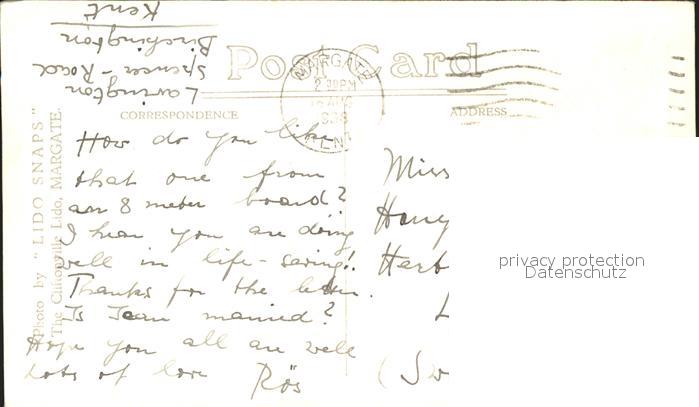 Lavington
Spencer - Road
Birchington
Kent
Post Card
MARGATE
2 30PM
KENT
CORRESPONDENCE
ADDRESS
Photo by "LIDO SNAPS"
The Cliftonville Lido, MARGATE.
How do you like
that one from
an 8 meter board?
I hear you are doing
well in life-saving!
Thanks for the letter.
Is Jean married?
Hope you all are well
Lots of love
Rös
Miss
privacy protection
Datenschutz